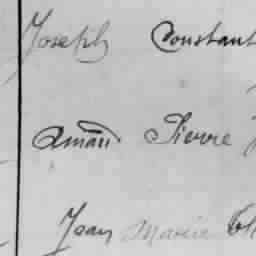 Joseph Constant
Amand Pierre
Jean Marie